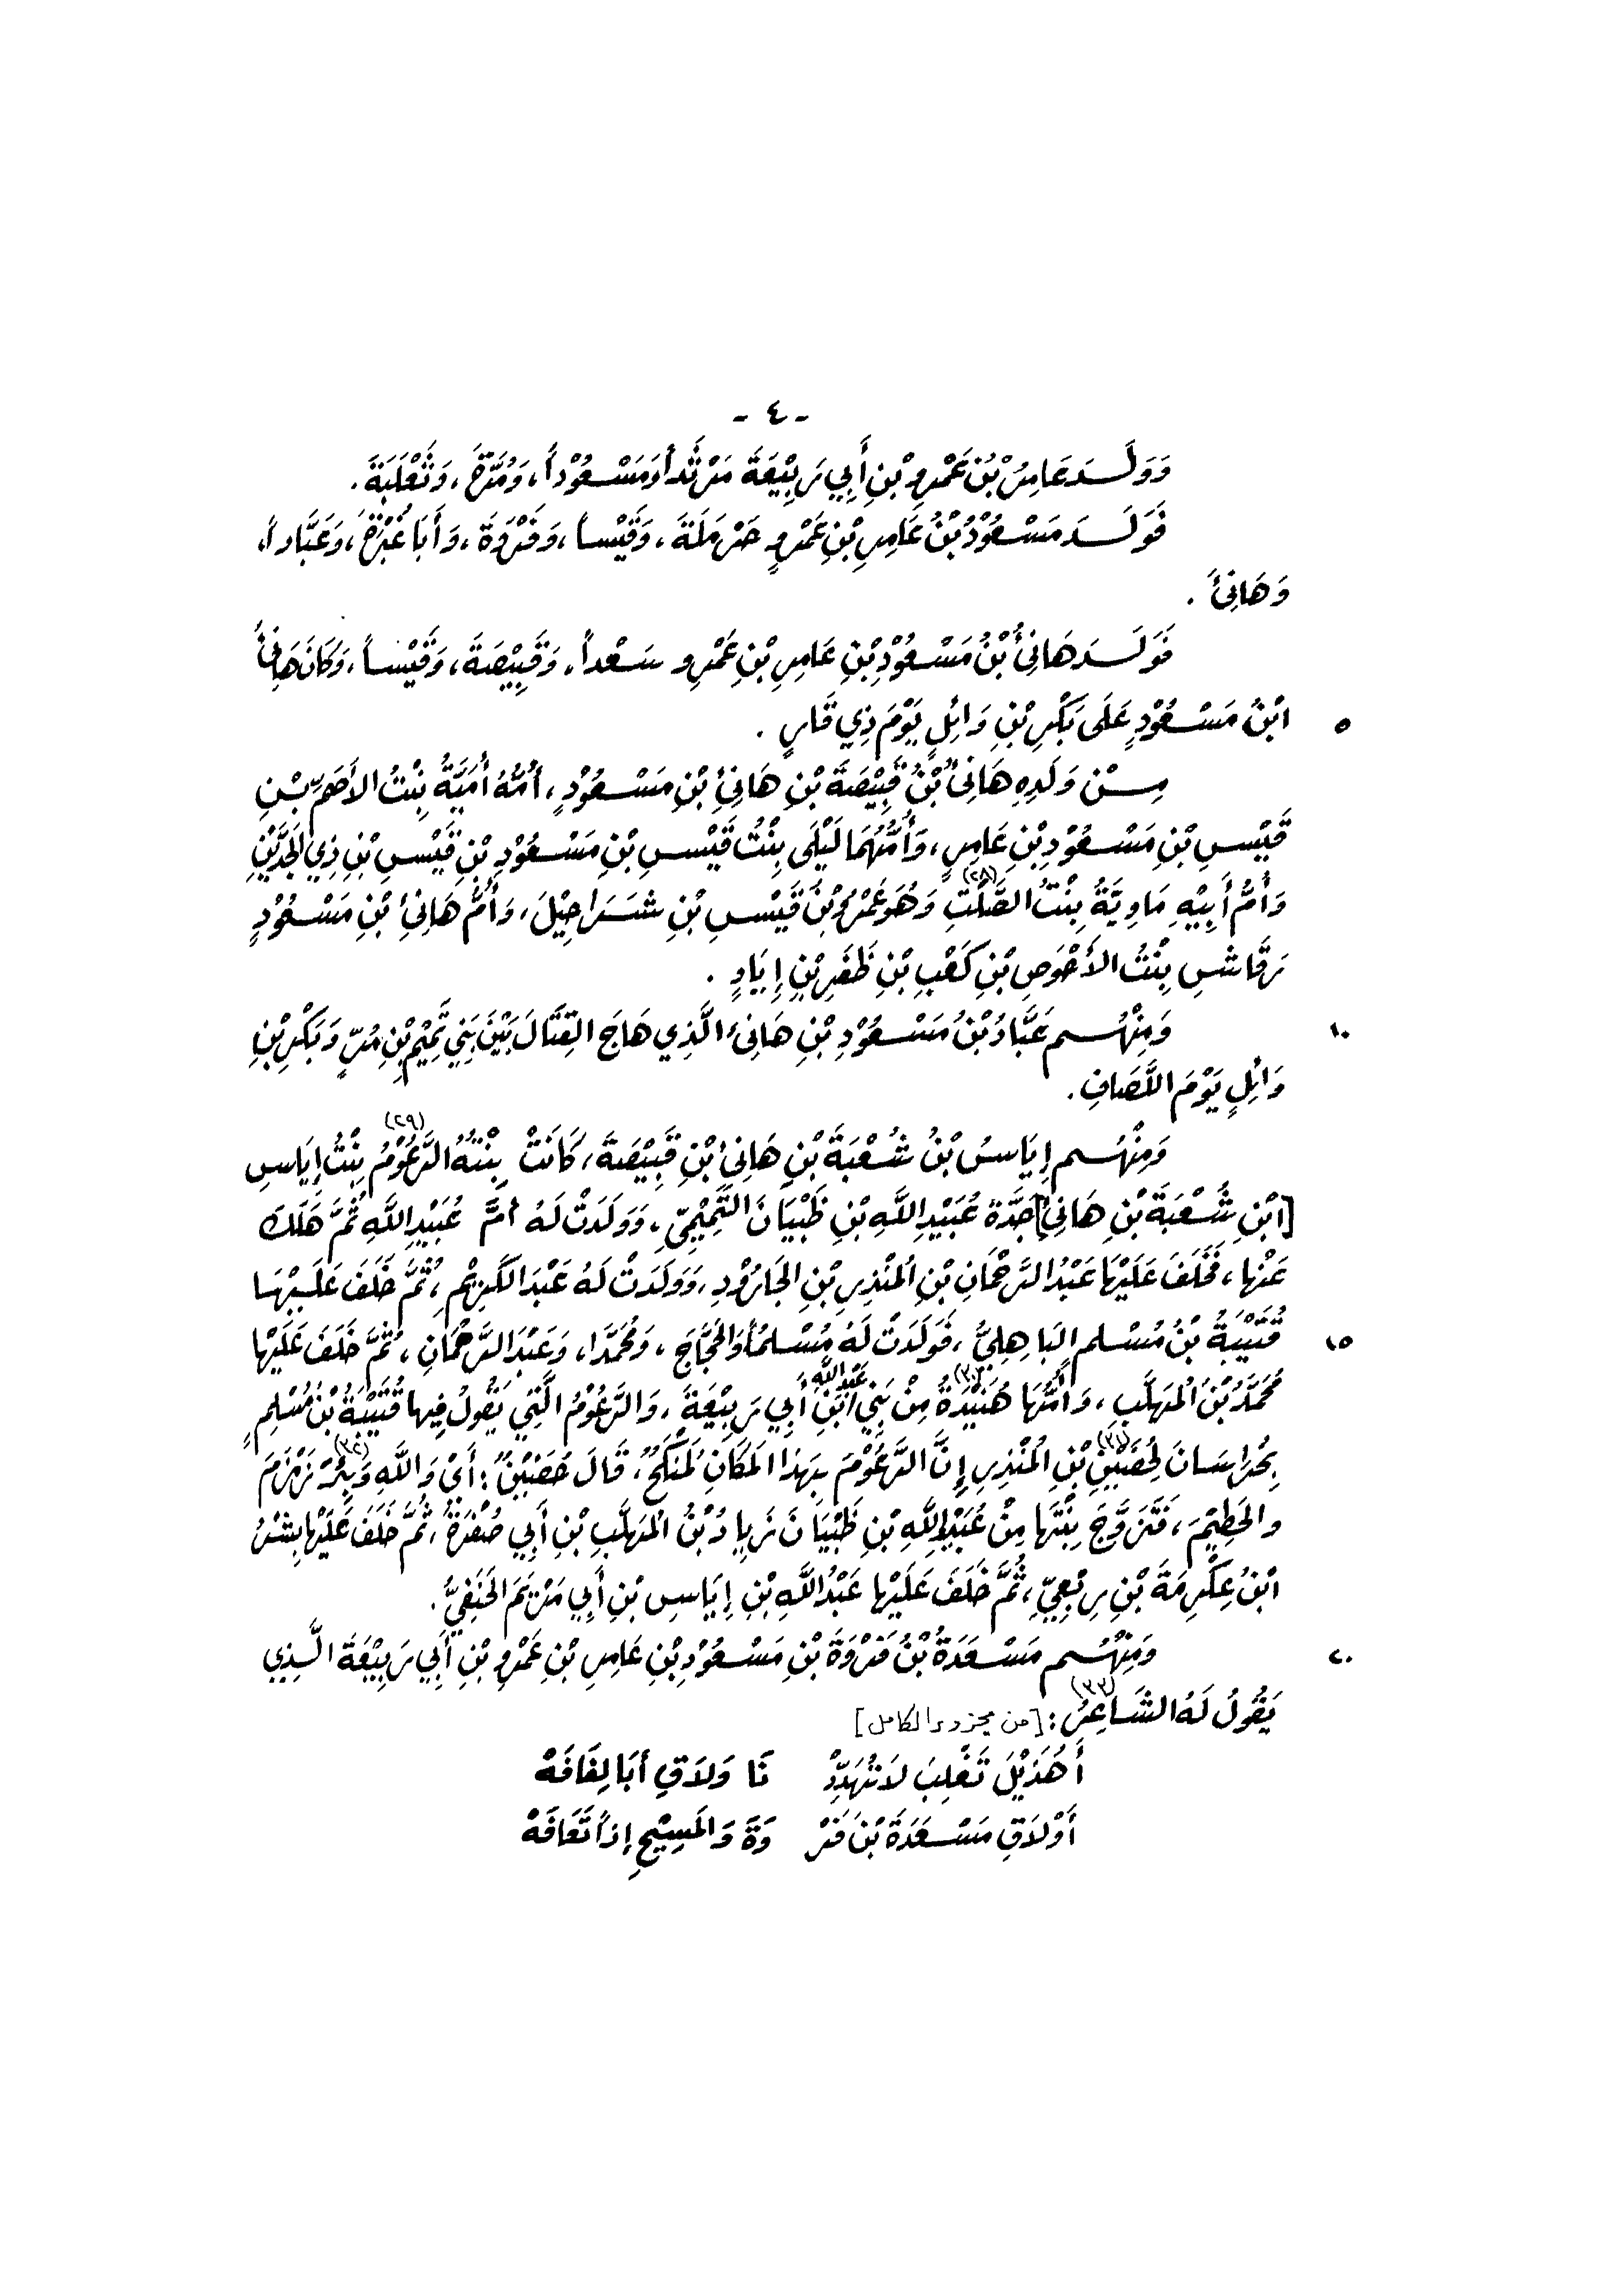 - ٤ -
وَوَلَدَ عَامِرُ بْنُ عَمْرِو بْنِ أَبِي رَبِيْعَةَ مَرْثَداً وَمَسْعُوْداً، وَمُرَّةَ، وَثَعْلَبَةَ.
فَوَلَدَ مَسْعُوْدُ بْنُ عَامِرِ بْنِ عَمْرٍو حَرْمَلَةَ، وَقَيْساً، وَفَرْوَةَ، وَأَبَا عُبْرَةَ، وَعَبَّاداً،
وَهَانِئَ.
فَوَلَدَ هَانِئُ بْنُ مَسْعُوْدِ بْنِ عَامِرِ بْنِ عَمْرٍو سَعْداً، وَقَبِيْصَةَ، وَقَيْساً، وَكَانَ هَانِئُ
٥ ابْنُ مَسْعُوْدٍ عَلَى بَكْرِ بْنِ وَائِلٍ يَوْمَ ذِي قَارٍ.
مِنْ وَلَدِهِ هَانِئُ بْنُ قَبِيْصَةَ بْنِ هَانِئِ بْنِ مَسْعُوْدٍ، أُمُّهُ أُمَيَّةُ بِنْتُ الأَصَمِّ بْنِ
قَيْسِ بْنِ مَسْعُوْدِ بْنِ عَامِرٍ، وَأُمُّهُمَا لَيْلَى بِنْتُ قَيْسِ بْنِ مَسْعُوْدِ بْنِ قَيْسِ بْنِ ذِي الجَدَّيْنِ
وَأُمُّ أَبِيْهِ مَاوِيَّةُ بِنْتُ الصَّلْتِ (٢٨) وَهُوَ عَمْرُو بْنُ قَيْسِ بْنِ شَرَاحِيْلَ، وَأُمُّ هَانِئِ بْنِ مَسْعُوْدٍ
رَقَاشِ بِنْتُ الأَحْوَصِ بْنِ كَعْبِ بْنِ ظَفَرِ بْنِ إِيَادٍ.
١٠ وَمِنْهُم عَبَّادُ بْنُ مَسْعُوْدِ بْنِ هَانِئ الَّذِي هَاجَ القِتَالَ بَيْنَ بَنِي تَمِيْمِ بْنِ مُرٍّ وَبَكْرِ بْنِ
وَائِلٍ يَوْمَ اللَّصَافِ.
وَمِنْهُم إِيَاسُ بْنُ شُعْبَةَ بْنِ هَانِئِ بْنِ قَبِيْصَةَ، كَانَتْ بِنْتُهُ الزَّعُوْمُ (٢٩) بِنْتُ إِيَاسِ
[ابْنِ شُعْبَةَ بْنِ هَانِئٍ] جَدَّةَ عُبَيْدِ اللَّهِ بْنِ ظَبْيَانَ التَّمِيْمِيِّ، وَوَلَدَتْ لَهُ أُمَّ عُبَيْدِ اللَّهِ ثُمَّ هَلَكَ
عَنْهَا، فَخَلَفَ عَلَيْهَا عَبْدُ الرَّحْمَانِ بْنِ المُنْذِرِ بْنِ الجَارُوْدِ، وَوَلَدَتْ لَهُ عَبْدَ الكَرِيْمِ، ثُمَّ خَلَفَ عَلَيْهَا
١٥ قُتَيْبَةُ بْنُ مُسْلِمٍ البَاهِلِيُّ، فَوَلَدَتْ لَهُ مُسْلِماً وَالحَجَّاجَ، وَمُحَمَّدًا، وَعَبْدَ الرَّحْمَانِ، ثُمَّ خَلَفَ عَلَيْهَا
مُحَمَّدُ بْنُ المُهَلَّبِ، وَأُمُّهَا هُنَيْدَةُ (٣٠) مِنْ بَنِي عَبْدِ اللَّهِ ابْنِ أَبِي رَبِيْعَةَ، وَالزَّعُوْمُ الَّتِي يَقُولُ فِيهَا قُتَيْبَةُ بْنُ مُسْلِمٍ
بِخُرَاسَانَ لِحُضَيْنِ (٣١) بْنِ المُنْذِرِ إِنَّ الزَّعُوْمَ بِهَذَا المَكَانِ لَمَنْكَحٌ، قَالَ حُضَيْنٌ (٣٢): أَيْ وَاللَّهِ وَبِئْرِ زَمْزَمَ
والحَطِيْمِ، فَتَزَوَّجَ بِنْتَهَا مِنْ عُبَيْدِ اللَّهِ بْنِ ظَبْيَانَ زِيَادُ بْنُ المُهَلَّبِ بْنِ أَبِي صُفْرَةَ، ثُمَّ خَلَفَ عَلَيْهَا بِشْرُ
ابْنُ عِكْرِمَةَ بْنِ رِبْعِيٍّ، ثُمَّ خَلَفَ عَلَيْهَا عَبْدُ اللَّهِ بْنِ إِيَاسِ بْنِ أَبِي مَرْيَمَ الحَنَفِيُّ.
٢٠ وَمِنْهُم مَسْعَدَةُ بْنُ فَرْوَةَ بْنِ مَسْعُوْدِ بْنِ عَامِرِ بْنِ عَمْرِو بْنِ أَبِي رَبِيْعَةَ الَّذِي
يَقُولُ لَهُ الشَّاعِرُ (٣٣): [من مجزوء الكامل]
أَهُذَيْلَ تَغْلِبَ لاَ تُهَدِّدْ نَا وَلاَقِ أَبَا لِفَافَهْ
أَوْلاَقِ مَسْعَدَةَ بْنَ فَرْ وَةَ وَالمَسِيْحِ إِذاً تَعَافَهْ